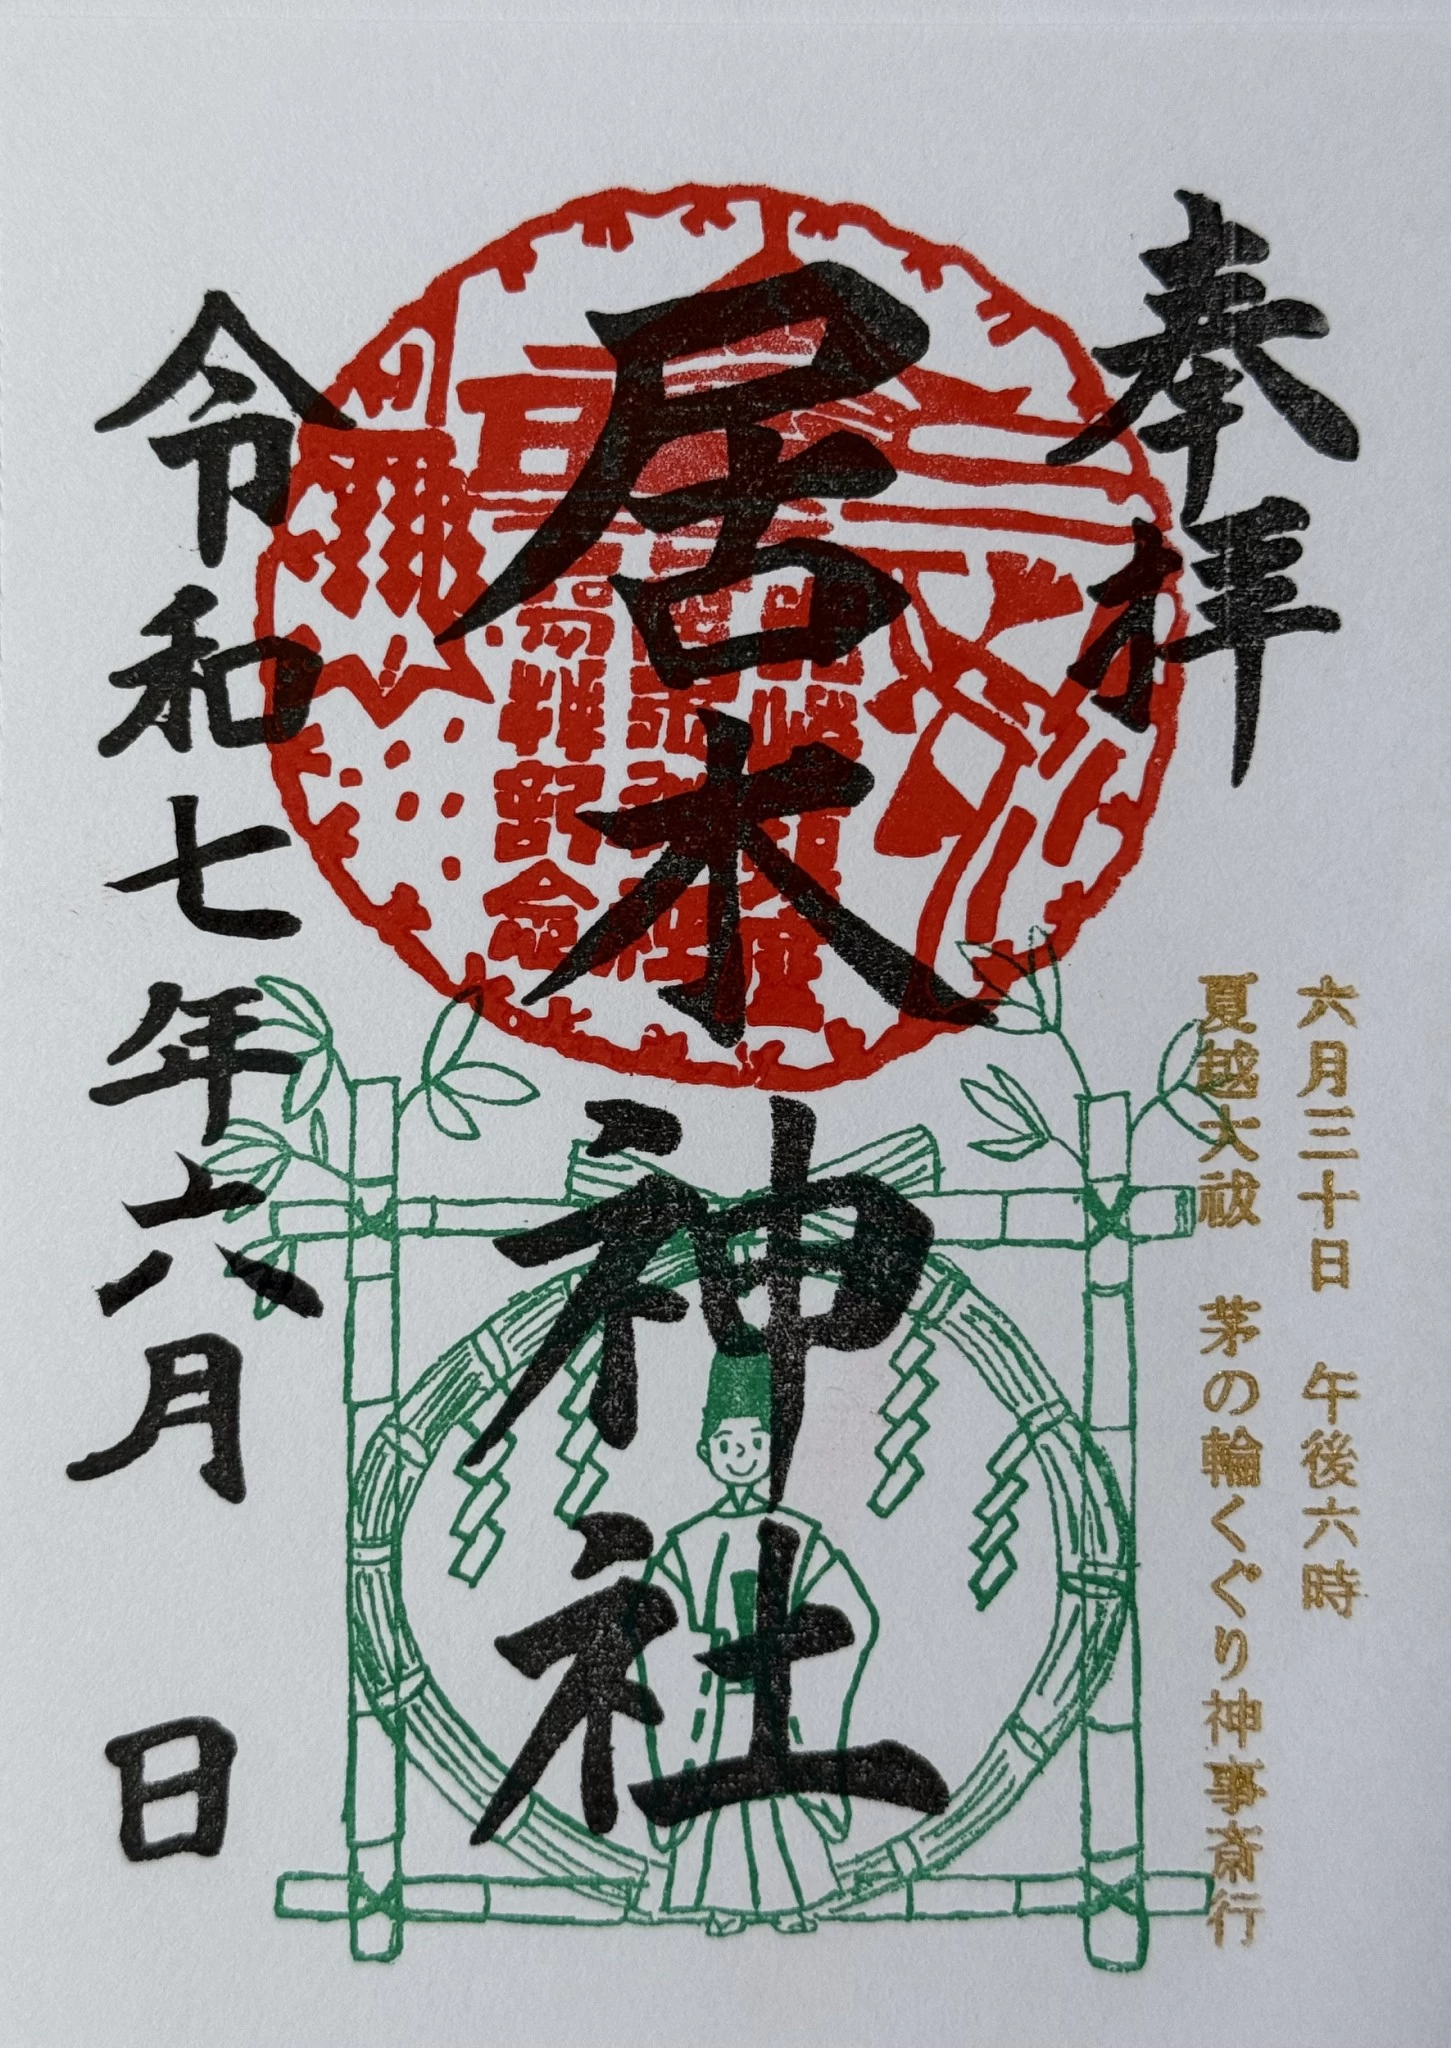 奉拝
六月三十日 午後六時
夏越大祓 茅の輪くぐり神事斎行
居木神社
令和七年六月 日